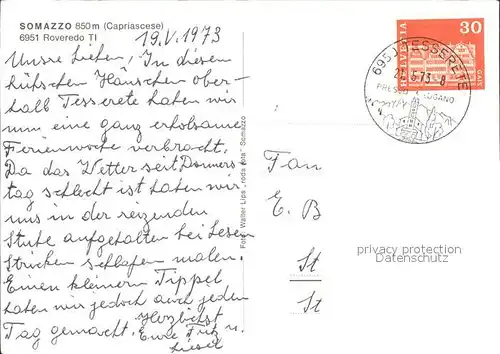 SOMAZZO 850 m (Capriascese)
6951 Roveredo TI
19.V.1973
Unsre Lieben, In diesem
hübschen Häuschen ober-
halb Tesserete haben wir
nun eine ganz erholsame
Ferienwoche verbracht.
Da das Wetter seit Donners
tag schlecht ist haben wir
uns in der reizenden
Stube aufgehalten bei Lesen
Stricken schlafen malen.
Einen kleinern Tippel
haben wir jedoch auch jeden
Tag gemacht. Herzlichst
Eure Fritz u.
Liesel
Foto: Walter Lips "roda foto" Somazzo
HELVETIA
30
6951 TESSERETE
21.5.73-8
PRESSO LUGANO
Fam
E. B
St
St
privacy protection
Datenschutz